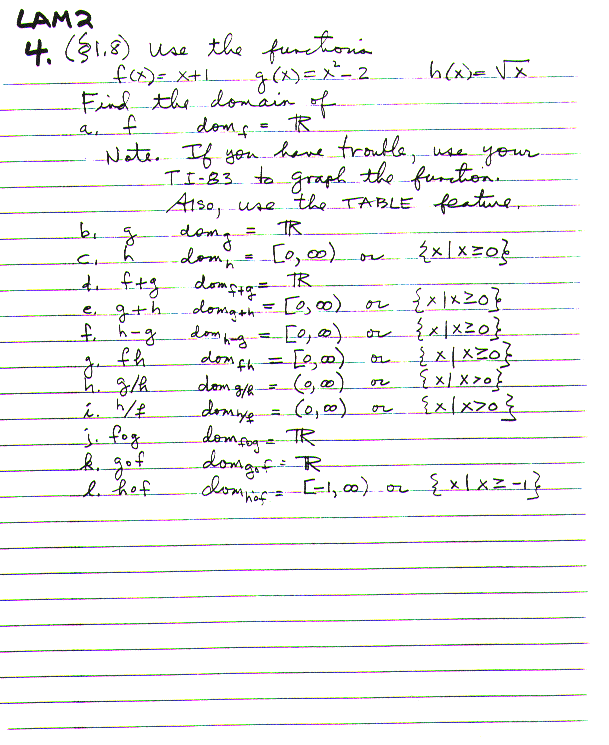 LAM2
4. (§1.8) Use the functions
f(x)= x+1 g(x)= x²-2 h(x)= √x
Find the domain of
a. f dom_f = ℝ
Note. If you have trouble, use your
TI-83 to graph the function.
Also, use the TABLE feature.
b. g dom_g = ℝ
c. h dom_h = [0, ∞) or {x|x≥0}
d. f+g dom_f+g = ℝ
e. g+h dom_g+h = [0, ∞) or {x|x≥0}
f. h-g dom_h-g = [0, ∞) or {x|x≥0}
g. fh dom_fh = [0, ∞) or {x|x≥0}
h. g/h dom_g/h = (0, ∞) or {x|x>0}
i. h/f dom_h/f = (0, ∞) or {x|x>0}
j. fog dom_fog = ℝ
k. gof dom_gof = ℝ
l. hof dom_hof = [-1, ∞) or {x|x≥-1}